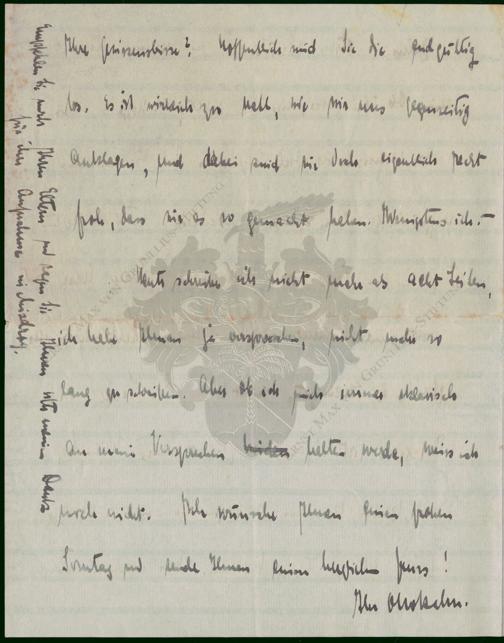 Ihre Gewissensbisse? Hoffentlich sind Sie die endgültig
los. Es ist wirklich zu nett, wie wir uns gegenseitig
anklagen, und dabei sind wir doch eigentlich recht
froh, dass wir es so gemacht haben. Wenigstens ich. –
Heute schreibe ich nicht mehr als acht Seiten,
ich habe Ihnen ja versprochen, nicht mehr so
lang zu schreiben. Aber ob ich mich immer sklavisch
an mein Versprechen halten werde, weiss ich
noch nicht. Ich wünsche Ihnen einen frohen
Sonntag und sende Ihnen einen herzlichen Gruss!
Ihr
Empfehlen Sie mich Ihren Eltern und sagen Sie Ihnen bitte meinen Dank
für ihre Aufnahme in